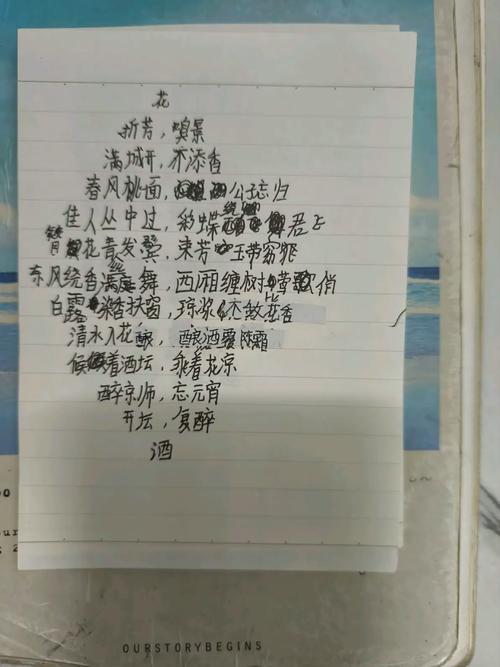 花
折芳，嗅景
满城开，不添香
春风桃面，公忘归
佳人丛中过，彩蝶绕君
花青发鬓，束芳玉带窈窕
东风绕香满庭舞，西厢缠树莺歌俏
白露染香扶窗，琼浆不敌花香
清水入花酿，酿酒覆陈霜
候着酒坛，乘着花凉
醉京师，忘元宵
开坛，复醉
酒
OURSTORYBEGINS